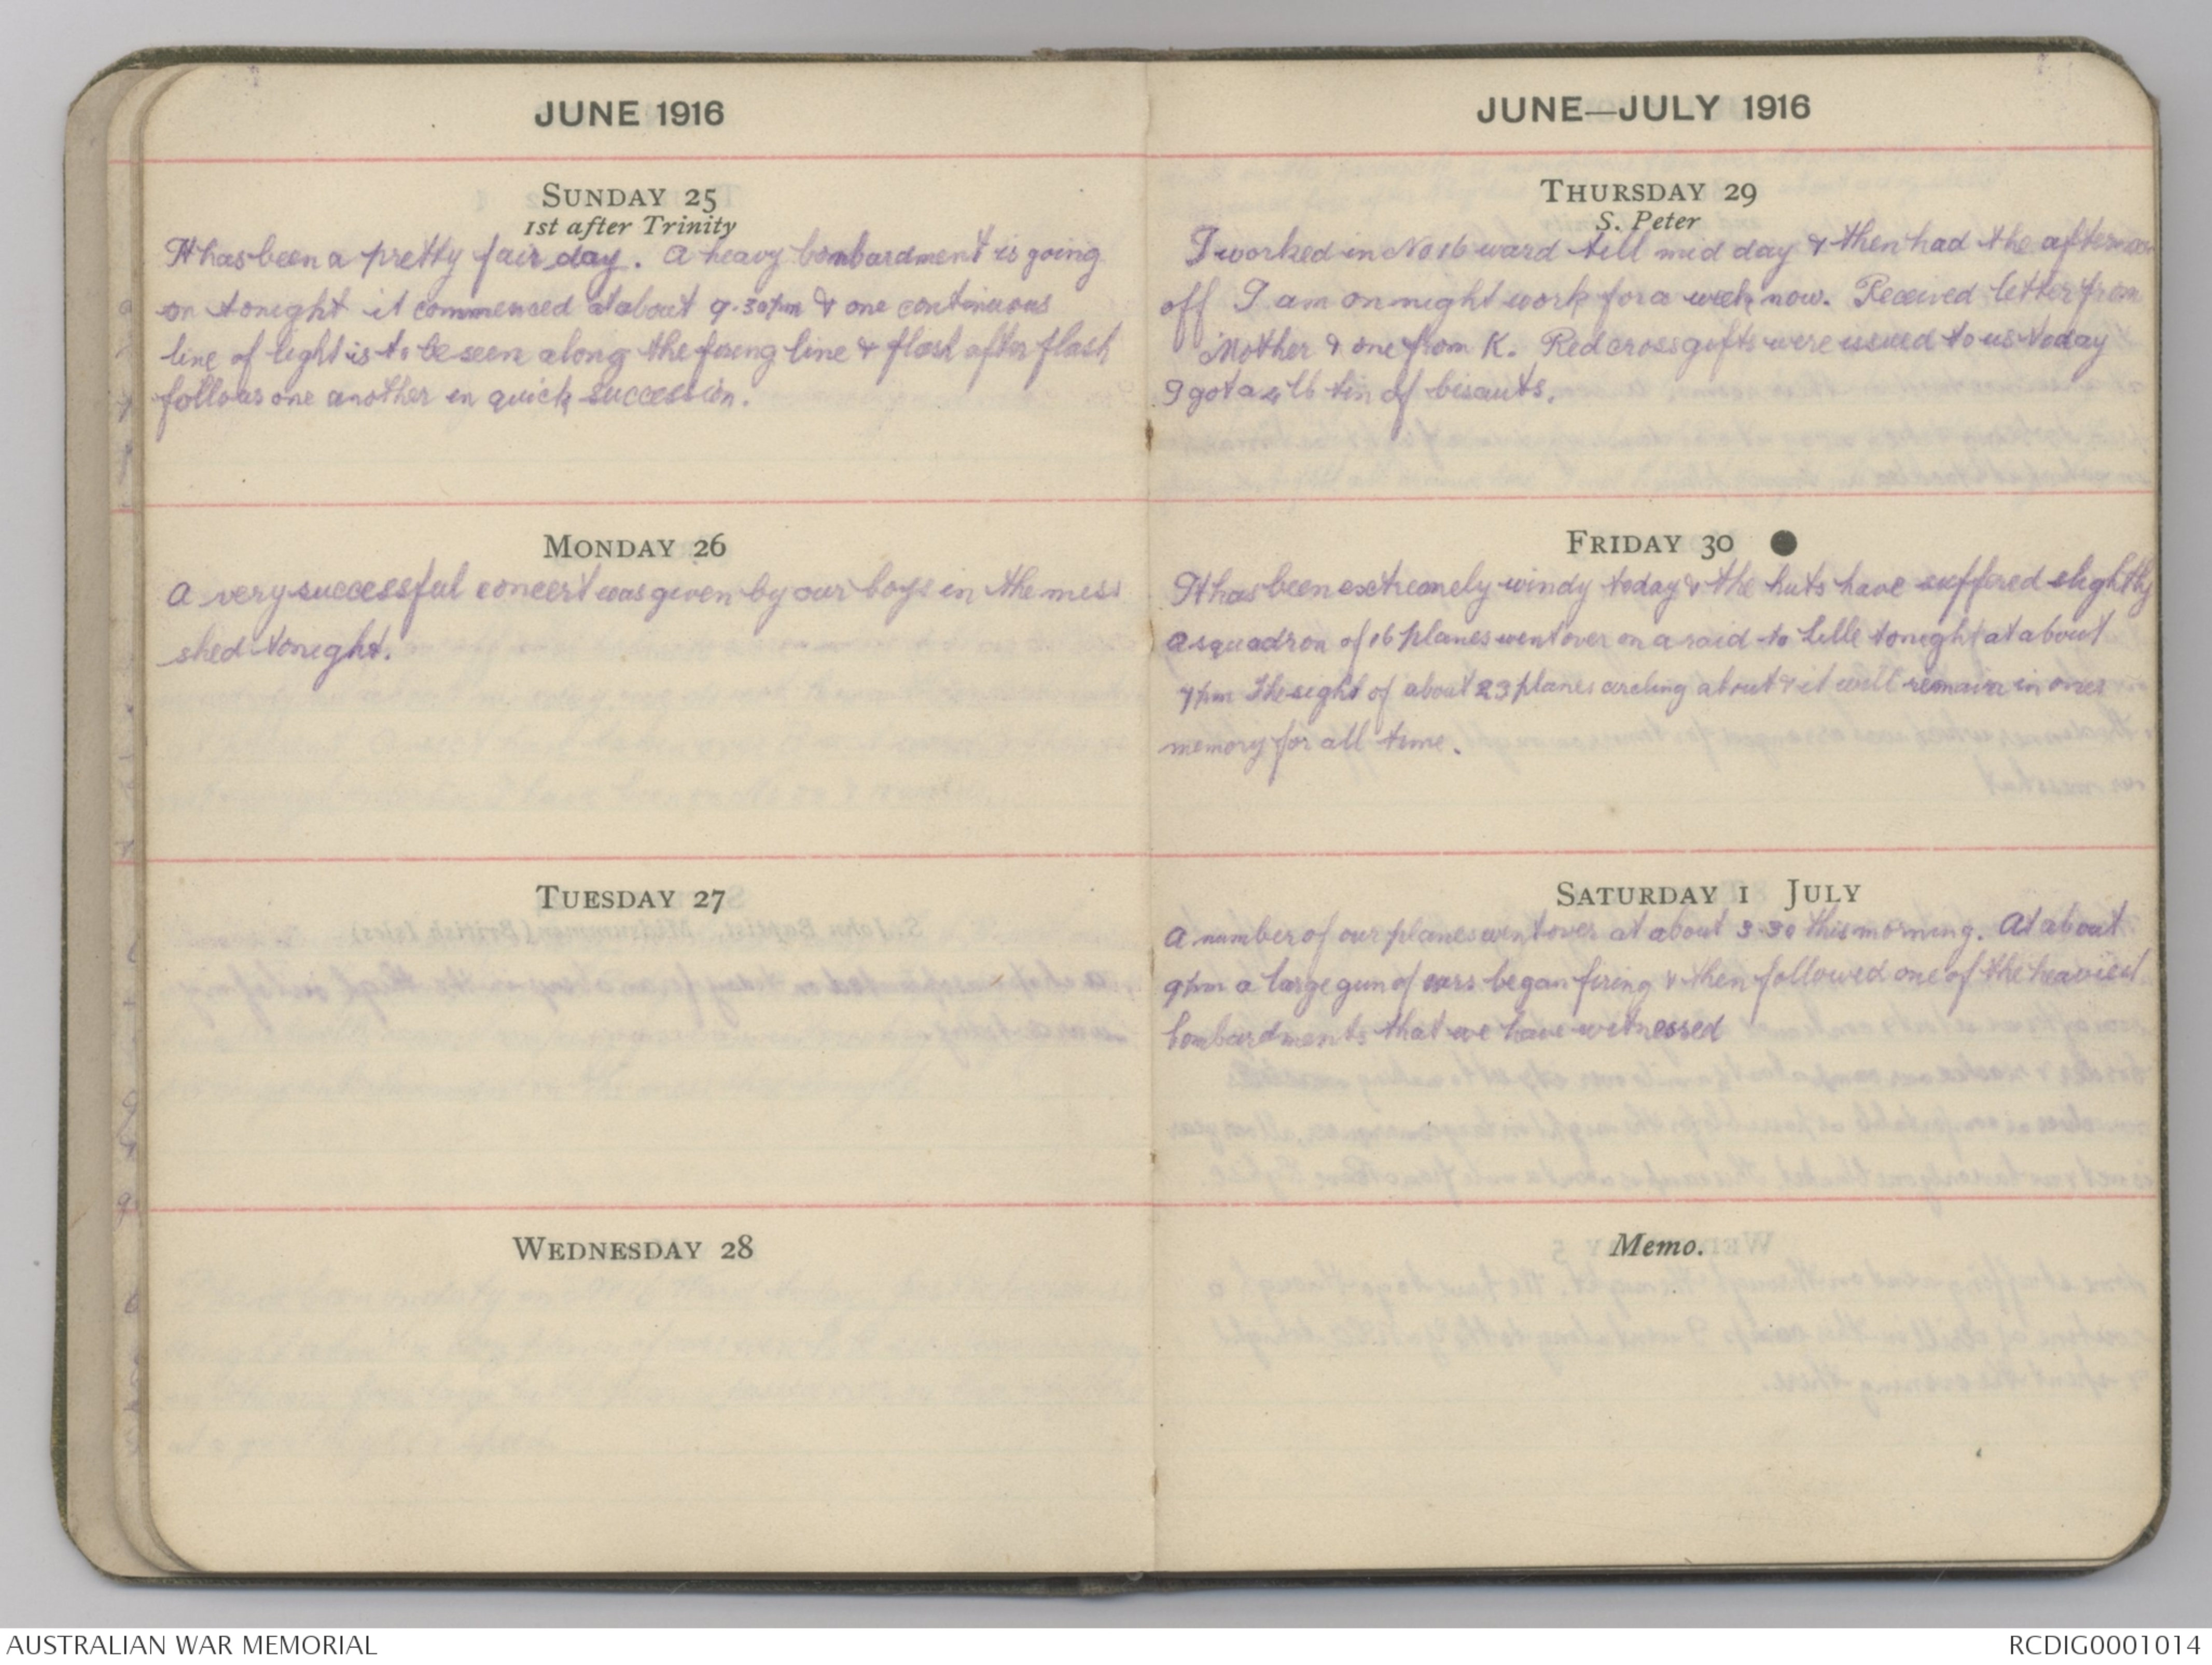 JUNE 1916
SUNDAY 25
1st after Trinity
It has been a pretty fair day. A heavy bombardment is going
on tonight it commenced at about 9.30pm & one continuous
line of light is to be seen along the firing line & flash after flash
follows one another in quick succession.
MONDAY 26
A very successful concert was given by our boys in the mess
shed tonight.
TUESDAY 27
WEDNESDAY 28
JUNE—JULY 1916
THURSDAY 29
S. Peter
I worked in No 16 ward till mid day & then had the afternoon
off I am on night work for a week now. Received letter from
Mother & one from K. Red cross gifts were issued to us today
I got a 4 lb tin of biscuits.
FRIDAY 30
It has been extremely windy today & the huts have suffered slightly
A squadron of 16 planes went over on a raid to Lille tonight at about
7pm The sight of about 23 planes circling about & it will remain in ones
memory for all time.
SATURDAY 1 JULY
A number of our planes went over at about 3.30 this morning. At about
9pm a large gun of ours began firing & then followed one of the heaviest
bombardments that we have witnessed
Memo.
AUSTRALIAN WAR MEMORIAL
RCDIG0001014